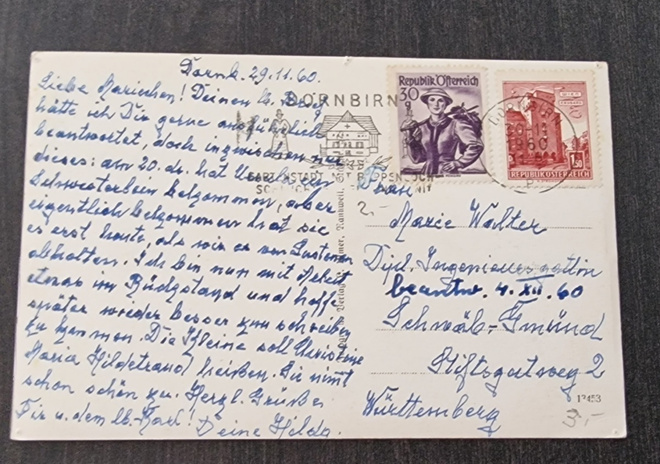 Dornb. 29.11.60.
Liebe Marieschen! Deinen lb. Brief
hätte ich Dir gerne ausführlich
beantwortet, doch inzwischen nur
dieses: am 20. ds. hat
Schwesterlein bekommen, aber
eigentlich bekommen hat sie
es erst heute, als wir es von Lustenau
abholten. Ich bin nun mit Arbeit
etwas im Rückstand und hoffe
später wieder besser zum schreiben
zu kommen. Die Kleine soll Christine
Maria Hildetraud heißen. Sie nimt
schon schön zu. Herzl. Grüße
Dir u. dem lb. Karl! Deine Hilda.
DORNBIRN
GARTENSTADT MIT
REPUBLIK ÖSTERREICH
30
g
1.50
REPUBLIK ÖSTERREICH
DORNBIRN
29.11.
1960
Frau
2.-
Marie Walter
Dipl. Ingenieursgattin
beantw. 4. XII. 60
Schwäb.-Gmünd
Stiftsgutweg 2
Württemberg
Verlag
Rankweil
12453
3.-